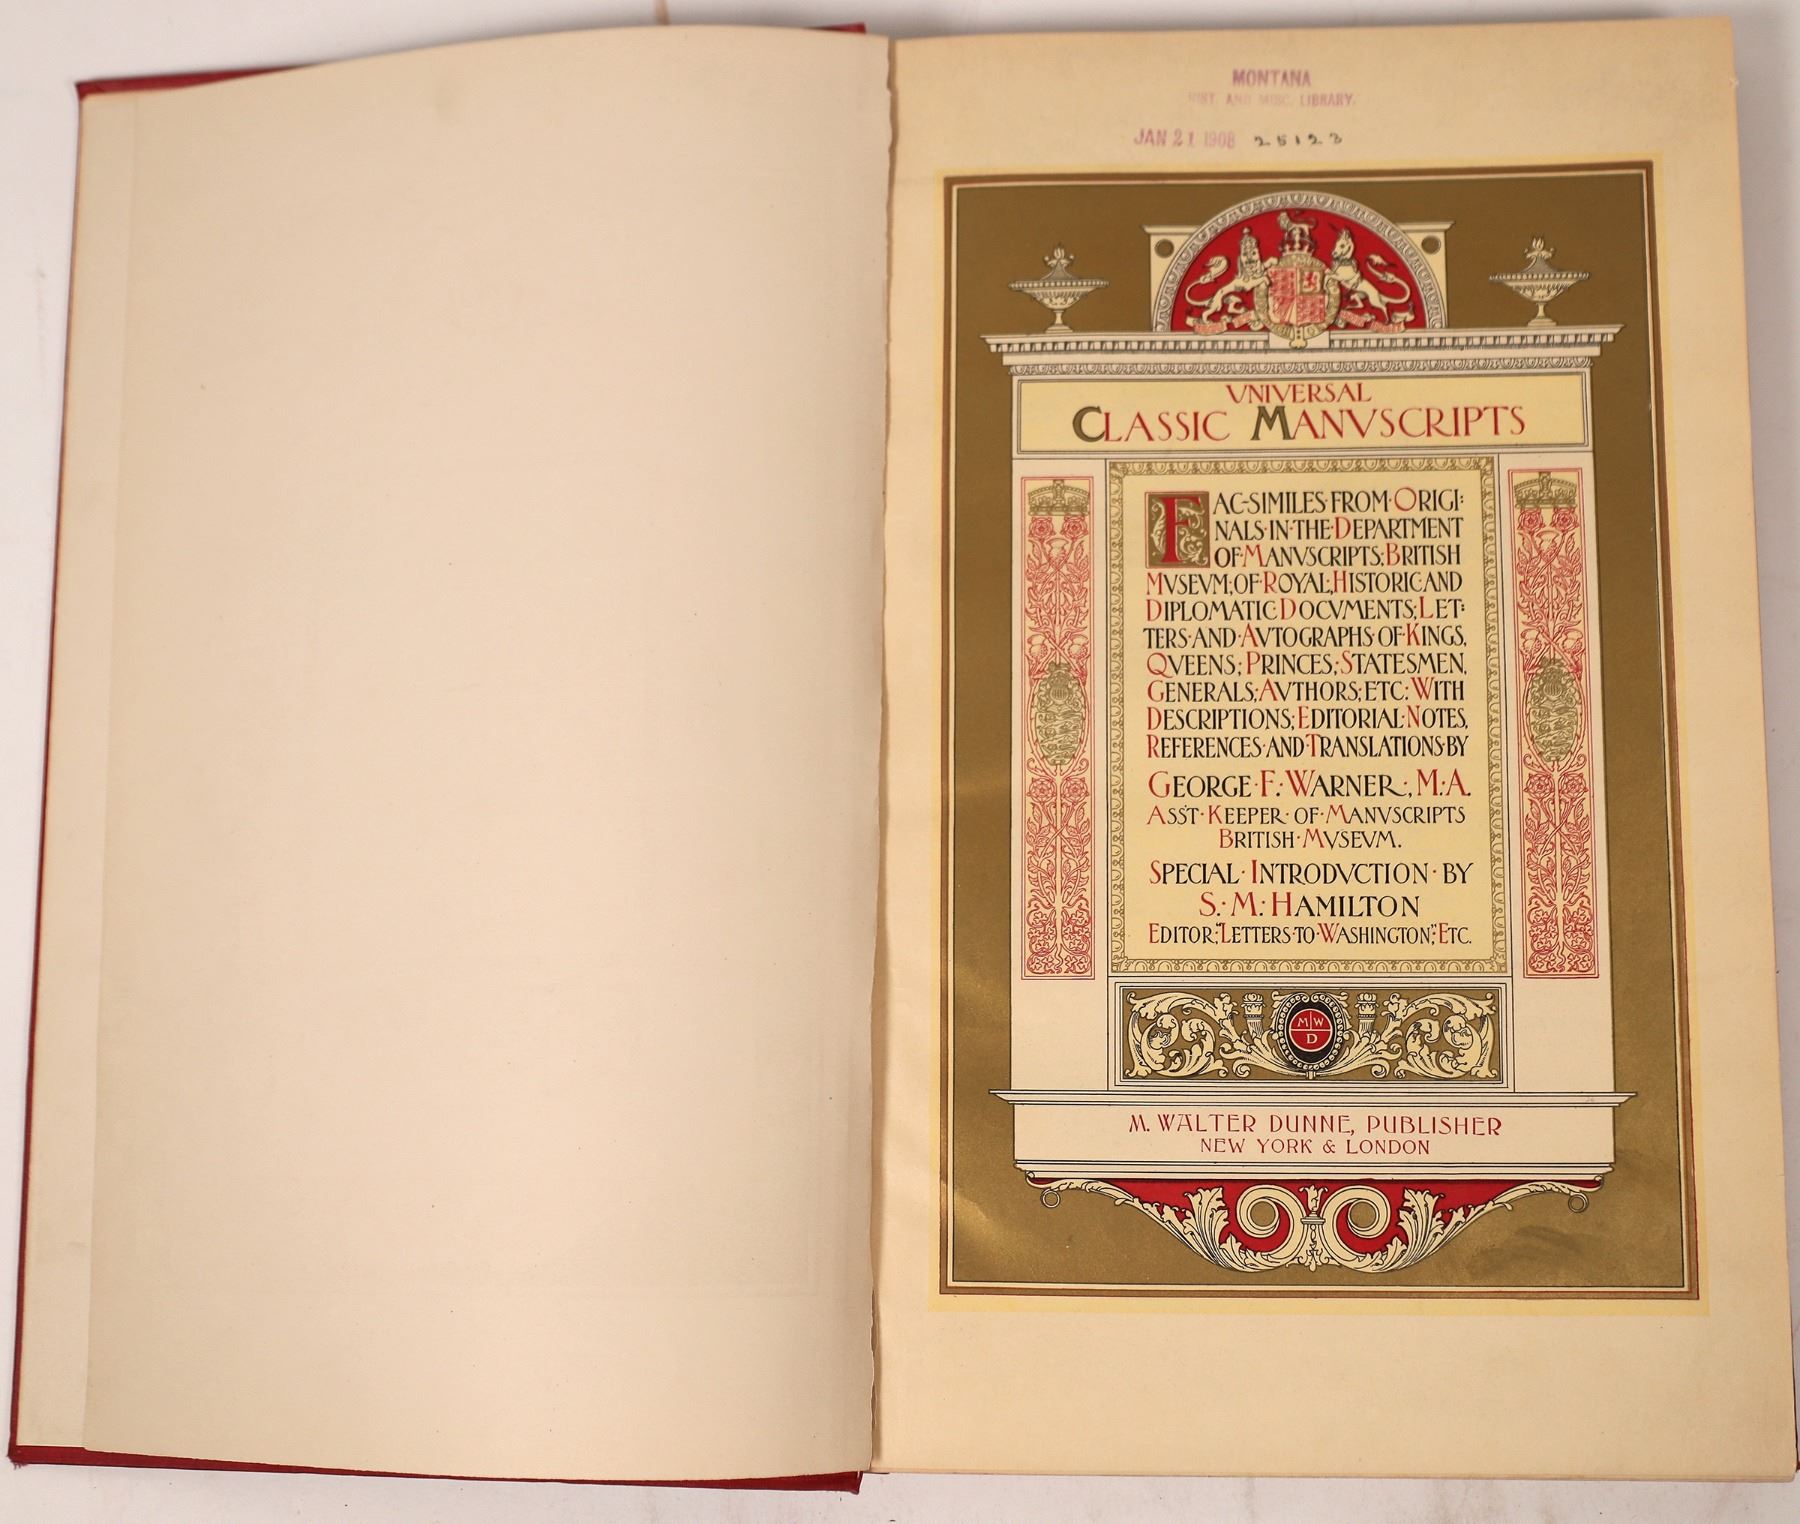 MONTANA
HIST. AND MISC. LIBRARY.
JAN 21 1908 25123
VNIVERSAL
CLASSIC MANVSCRIPTS
FAC-SIMILES·FROM·ORIGI:
NALS·IN·THE·DEPARTMENT
OF·MANVSCRIPTS;BRITISH
MVSEVM;OF·ROYAL;HISTORIC·AND
DIPLOMATIC·DOCVMENTS;LET:
TERS·AND·AVTOGRAPHS·OF·KINGS,
QVEENS;PRINCES;STATESMEN,
GENERALS;AVTHORS;ETC:WITH
DESCRIPTIONS;EDITORIAL·NOTES,
REFERENCES·AND·TRANSLATIONS·BY
GEORGE·F.·WARNER·, M·A.
ASS'T·KEEPER·OF·MANVSCRIPTS
BRITISH·MVSEVM.
SPECIAL·INTRODVCTION·BY
S.·M.·HAMILTON
EDITOR;"LETTERS·TO·WASHINGTON";ETC.
M W
D
M. WALTER DUNNE, PUBLISHER
NEW YORK & LONDON